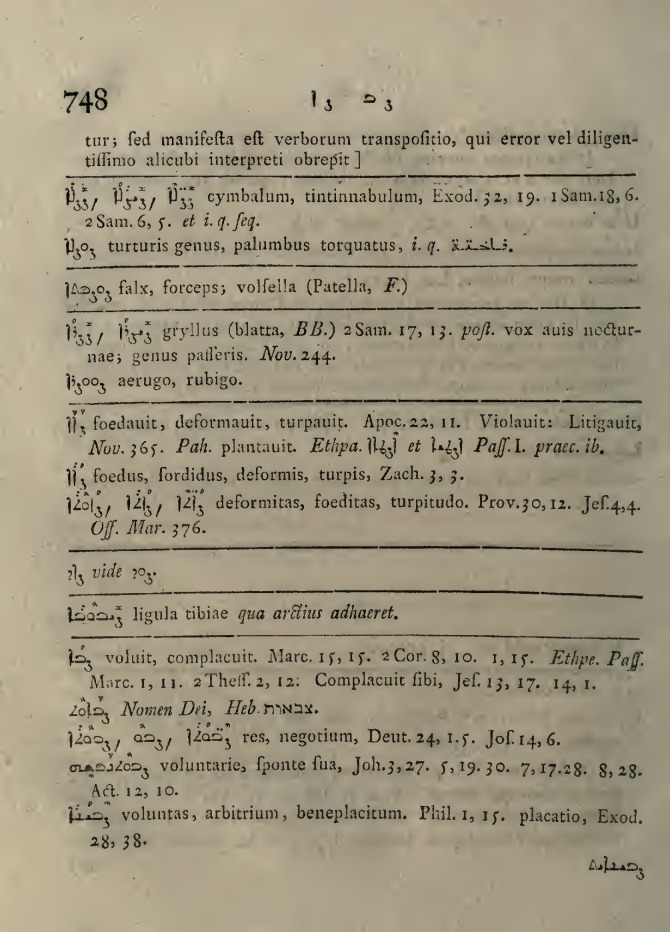 748 ܨܐ ܨܒ
tur; ſed manifeſta eſt verborum transpoſitio, qui error vel diligen-
tiſſimo alicubi interpreti obrepſit ]
cymbalum, tintinnabulum, Exod. 32, 19. 1 Sam. 18, 6.
2 Sam. 6, 5. et i. q. ſeq.
ܨܘܨܠܐ turturis genus, palumbus torquatus, i. q.
falx, forceps; volſella (Patella, F.)
gryllus (blatta, BB.) 2 Sam. 17, 13. poſt. vox auis noctur-
nae; genus paſſeris. Nov. 244.
aerugo, rubigo.
ܨܐܐ foedauit, deformauit, turpauit. Apoc. 22, 11. Violauit: Litigauit,
Nov. 365. Pah. plantauit. Ethpa. et Paſſ. I. praec. ib.
ܨܐܐ foedus, ſordidus, deformis, turpis, Zach. 3, 3.
deformitas, foeditas, turpitudo. Prov. 30, 12. Jeſ. 4, 4.
Off. Mar. 376.
ܨܐܕ vide ܨܘܕ.
ligula tibiae qua arctius adhaeret.
ܨܒܐ voluit, complacuit. Marc. 15, 15. 2 Cor. 8, 10. 1, 15. Ethpe. Paſſ.
Marc. 1, 11. 2 Theſſ. 2, 12: Complacuit ſibi, Jeſ. 13, 17. 14, 1.
ܨܒܐܘܬ Nomen Dei, Heb. צבאות.
ܨܒܘܬܐ, ܨܒܘ, res, negotium, Deut. 24, 1. 5. Joſ. 14, 6.
voluntarie, ſponte ſua, Joh. 3, 27. 5, 19. 30. 7, 17. 28. 8, 28.
Act. 12, 10.
ܨܒܝܢܐ voluntas, arbitrium, beneplacitum. Phil. 1, 15. placatio, Exod.
28, 38.
ܨܒܝܢܐܝܬ